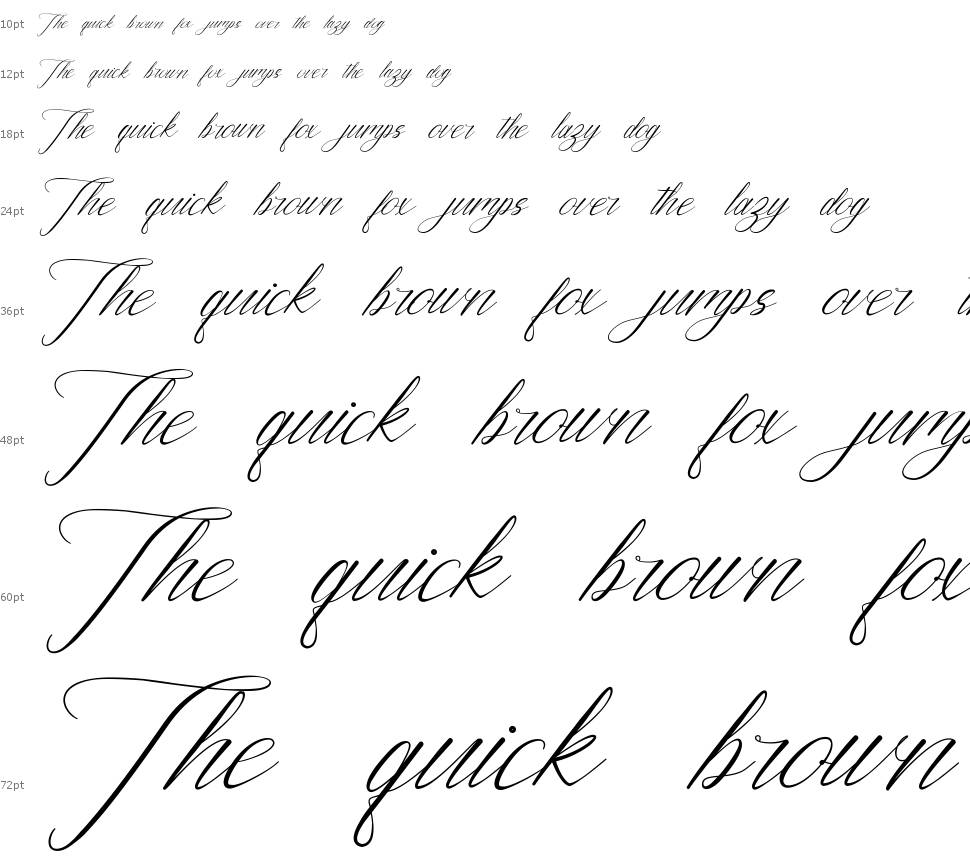 10pt The quick brown fox jumps over the lazy dog
12pt The quick brown fox jumps over the lazy dog
18pt The quick brown fox jumps over the lazy dog
24pt The quick brown fox jumps over the lazy dog
36pt The quick brown fox jumps over
48pt The quick brown fox jumps
60pt The quick brown fox
72pt The quick brown